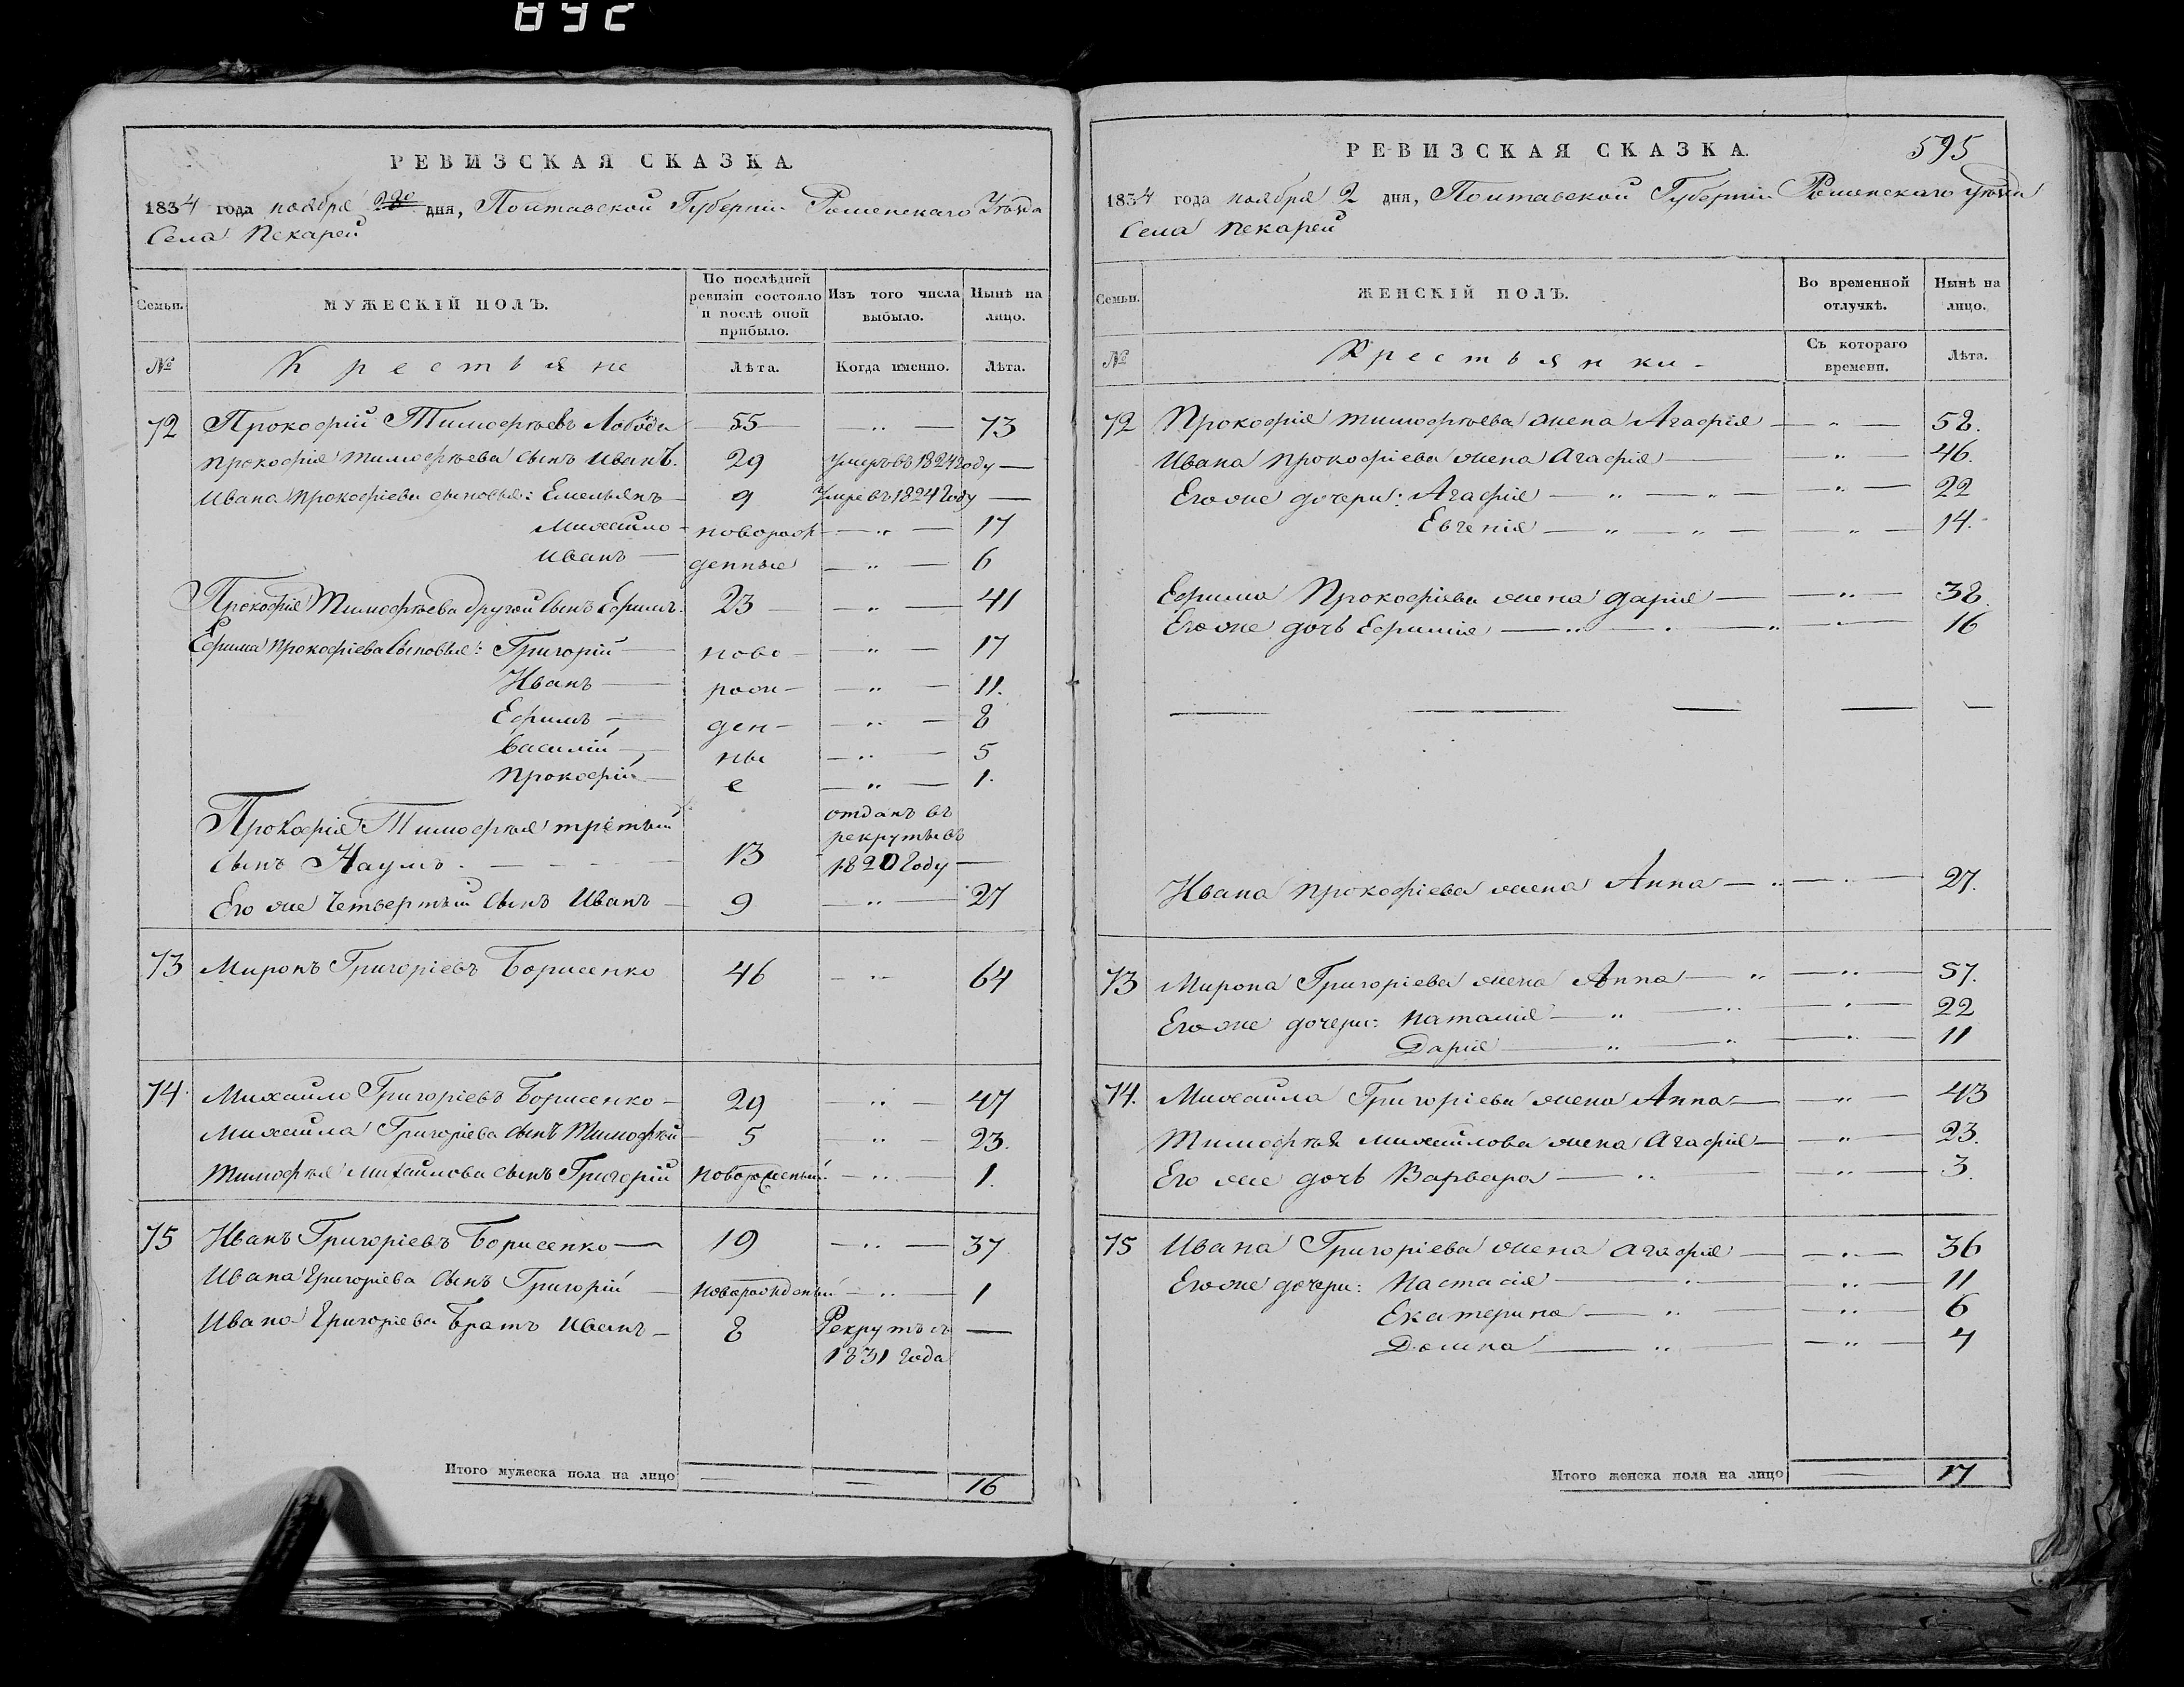 892
РЕВИЗСКАЯ СКАЗКА.
1834 года ноября 2го дня, Полтавской Губернии Роменскаго Уѣзда
Села Пекарей
Семьи.
МУЖЕСКІЙ ПОЛЪ.
По послѣдней ревизіи состояло и послѣ оной прибыло.
Изъ того числа выбыло.
Нынѣ на лицо.
№
Крестьяне
Лѣта.
Когда именно.
Лѣта.
72 Прокофій Тимофѣевъ Лобода 55 — „ — 73
Прокофія Тимофѣева сынъ Иванъ. 29 Умеръ въ 1824 году —
Ивана Прокофіева сыновья: Емельянъ 9 Умре въ 1824 году —
Михайло новорож — „ — 17
Иванъ — денные — „ — 6
Прокофія Тимофѣева другой сынъ Ефимъ. 23 — „ — 41
Ефима Прокофіева сыновья: Григорій ново — „ — 17
Иванъ — рож — „ — 11.
Ефимъ — ден — „ — 8
Василій — ны — „ — 5
Прокофій — е — „ — 1.
Прокофія Тимофѣя третый
сынъ Наумъ. 13
отданъ въ
рекруты въ
1820 году —
Его же четвертый сынъ Иванъ 9 — „ — 27
73 Миронъ Григоріевъ Борисенко 46 — „ — 64
74. Михайло Григоріевъ Борисенко — 29 — „ — 47
Михайла Григоріева сынъ Тимофѣй 5 — „ — 23.
Тимофѣя Михайлова сынъ Григорій новорожденый — „ — 1.
75 Иванъ Григоріевъ Борисенко — 19 — „ — 37
Ивана Григоріева сынъ Григорій новорожденый — „ — 1
Ивана Григоріева братъ Иванъ — 8 Рекрутъ съ —
1831 года
Итого мужеска пола на лицо — — 16
595
РЕВИЗСКАЯ СКАЗКА.
1834 года ноября 2 дня, Полтавской Губерніи Роменскаго уѣзда
Села Пекарей
Семьи.
ЖЕНСКІЙ ПОЛЪ.
Во временной отлучкѣ.
Нынѣ на лицо.
№
Крестьянки.
Съ котораго времени.
Лѣта.
72 Прокофія Тимофѣева жена Агафія — „ — 58.
Ивана Прокофіева жена Агафія — „ — 46.
Его же дочери: Агафія — „ — „ — „ — 22
Евгенія — „ — „ — „ — 14.
Ефима Прокофіева жена Дарія — „ — 38
Его же дочь Ефимія — „ — „ — 16
Ивана Прокофіева жена Анна — „ — 27.
73 Мирона Григоріева жена Анна — „ — „ — 57.
Его же дочери: Наталія — „ — „ — 22
Дарія — „ — „ — „ — 11
74. Михайла Григоріева жена Анна — „ — 43
Тимофѣя Михайлова жена Агафія — „ — 23.
Его же дочь Варвара — „ — „ — 3.
75 Ивана Григоріева жена Агафія — „ — 36
Его же дочери: Настасія — „ — „ — 11
Екатерина — „ — „ — 6
Домна — „ — „ — 4
Итого женска пола на лицо — 17